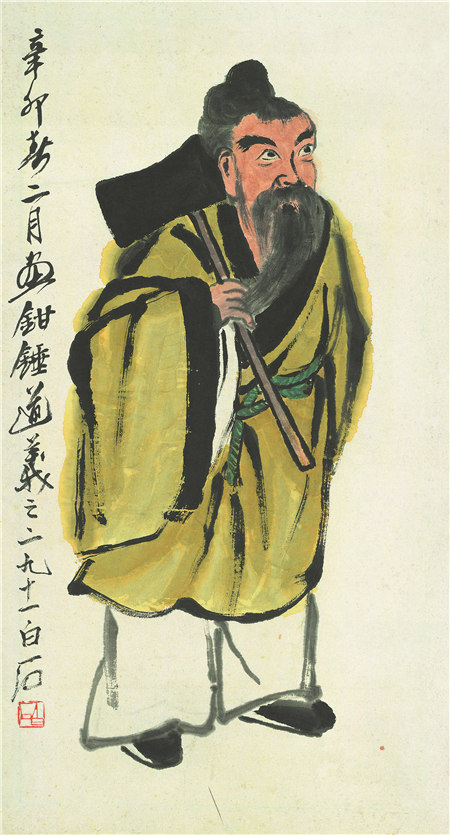 辛卯春二月画鉗錘道義之二九十一白石